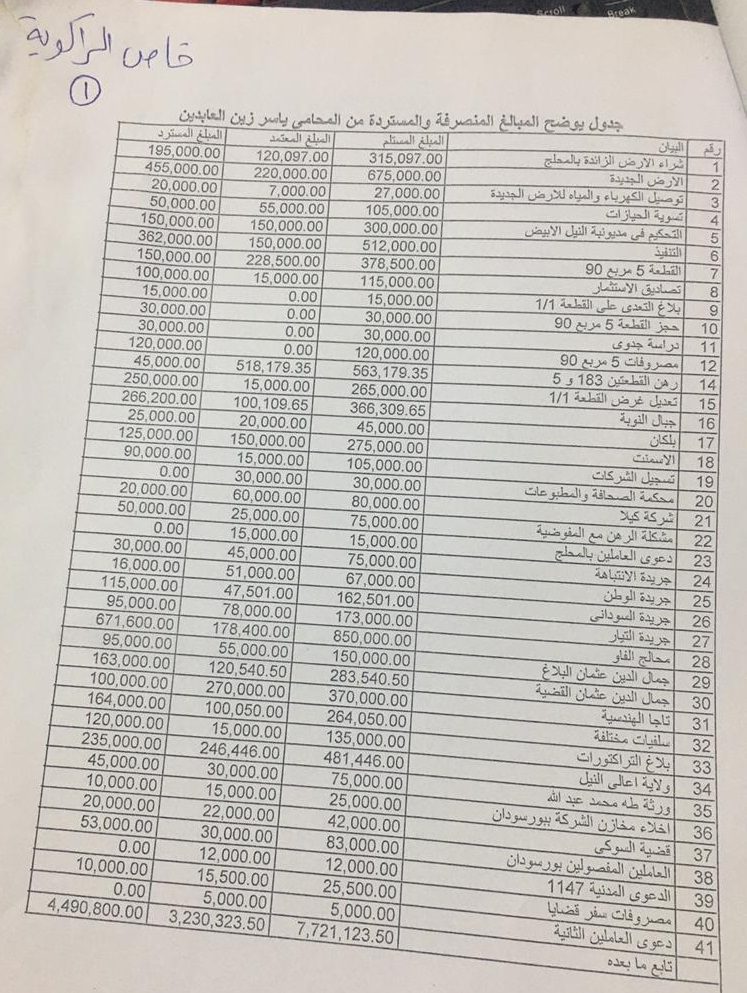 خاص الراكوبة
١
جدول يوضح المبالغ المنصرفة والمستردة من المحامي ياسر زين العابدين
رقم البيان المبلغ المستلم المبلغ المعتمد المبلغ المسترد
1 شراء الارض الزائدة بالمحلج 315,097.00 120,097.00 195,000.00
2 الارض الجديدة 675,000.00 220,000.00 455,000.00
3 توصيل الكهرباء والمياه للارض الجديدة 27,000.00 7,000.00 20,000.00
4 تسوية الحيازات 105,000.00 55,000.00 50,000.00
5 التحكيم فى مديونية النيل الابيض 300,000.00 150,000.00 150,000.00
6 التنفيذ 512,000.00 150,000.00 362,000.00
7 القطعة 5 مربع 90 378,500.00 228,500.00 150,000.00
8 تصاديق الاستثمار 115,000.00 15,000.00 100,000.00
9 بلاغ التعدى على القطعة 1/1 15,000.00 0.00 15,000.00
10 حجز القطعة 5 مربع 90 30,000.00 0.00 30,000.00
11 دراسة جدوى 30,000.00 0.00 30,000.00
12 مصروفات 5 مربع 90 120,000.00 0.00 120,000.00
14 رهن القطعتين 183 و 5 563,179.35 518,179.35 45,000.00
15 تعديل غرض القطعة 1/1 265,000.00 15,000.00 250,000.00
16 جبال النوبة 366,309.65 100,109.65 266,200.00
17 بلكان 45,000.00 20,000.00 25,000.00
18 الاسمنت 275,000.00 150,000.00 125,000.00
19 تسجيل الشركات 105,000.00 15,000.00 90,000.00
20 محكمة الصحافة والمطبوعات 30,000.00 30,000.00 0.00
21 شركة كيلا 80,000.00 60,000.00 20,000.00
22 مشكلة الرهن مع المفوضية 75,000.00 25,000.00 50,000.00
23 دعوى العاملين بالمحلج 15,000.00 15,000.00 0.00
24 جريدة الانتباهة 75,000.00 45,000.00 30,000.00
25 جريدة الوطن 67,000.00 51,000.00 16,000.00
26 جريدة السودانى 162,501.00 47,501.00 115,000.00
27 جريدة التيار 173,000.00 78,000.00 95,000.00
28 محالج الفاو 850,000.00 178,400.00 671,600.00
29 جمال الدين عثمان البلاغ 150,000.00 55,000.00 95,000.00
30 جمال الدين عثمان القضية 283,540.50 120,540.50 163,000.00
31 تاجا الهندسية 370,000.00 270,000.00 100,000.00
32 سلفيات مختلفة 264,050.00 100,050.00 164,000.00
33 بلاغ التراكتورات 135,000.00 15,000.00 120,000.00
34 ولاية اعالى النيل 481,446.00 246,446.00 235,000.00
35 ورثة طه محمد عبد الله 75,000.00 30,000.00 45,000.00
36 اخلاء مخازن الشركة ببورسودان 25,000.00 15,000.00 10,000.00
37 قضية السوكى 42,000.00 22,000.00 20,000.00
38 العاملين المفصولين بورسودان 83,000.00 30,000.00 53,000.00
39 الدعوى المدنية 1147 12,000.00 12,000.00 0.00
40 مصروفات سفر قضايا 25,500.00 15,500.00 10,000.00
41 دعوى العاملين الثانية 5,000.00 5,000.00 0.00
تابع ما بعده 7,721,123.50 3,230,323.50 4,490,800.00
Scroll
Break